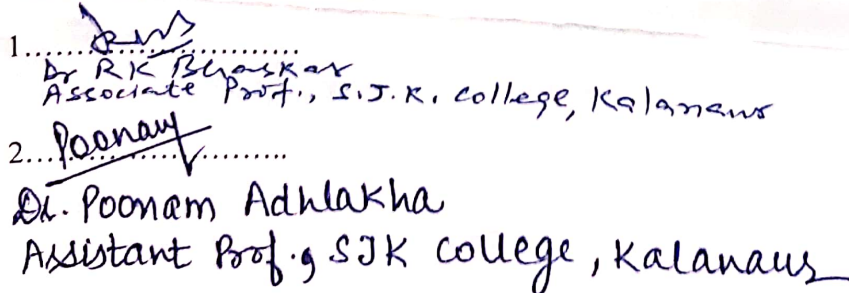 1.....................
Dr RK Bhaskar
Associate Prof., S.J.K. college, Kalanaur
2...Poonam..........
Dr. Poonam Adhlakha
Assistant Prof., SJK College, Kalanaur